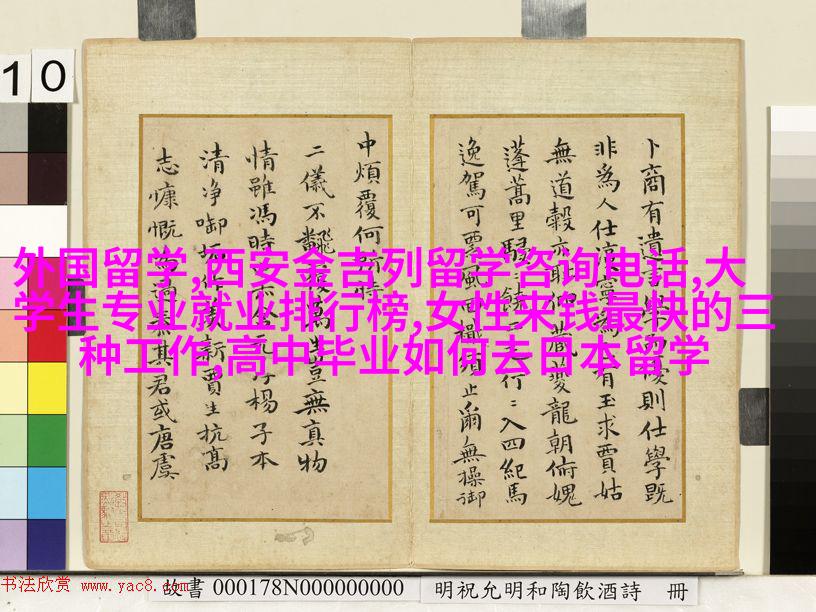 10
外国留学,西安金吉列留学咨询电话,大
学生专业就业排行榜,女性来钱最快的三
种工作,高中毕业如何去日本留学
卜商有遺言學則仕學既
非為人仕有玉求賈姑
無道穀亦龍朝俯媿
蓬蒿里騷〻餘行〻入四紀馬
逸駕可止爾無操御
中煩覆何所恃
二儀不萬生豈無真物
情雖馮時楊子本
清净啣新賈生抗高
志慷慨為過秦其君或唐虞
书法欣赏 www.yac8.com
故書 000178N000000000
明祝允明和陶飲酒詩 冊